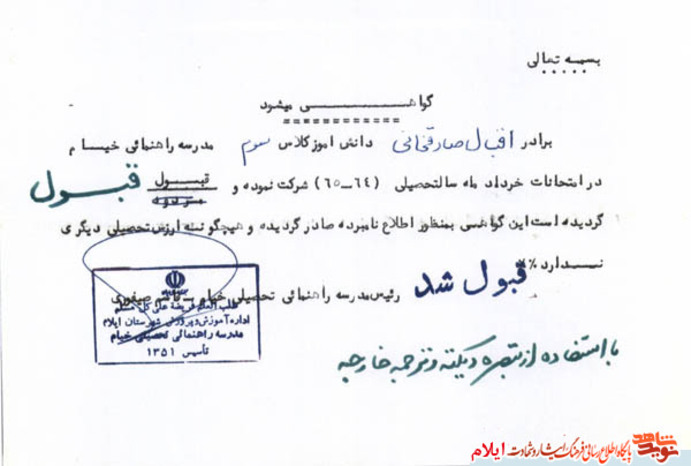 بسمه تعالی
گواهی میشود
برادر اقبال صادقخانی دانش آموز کلاس سوم مدرسه راهنمائی خیام
در امتحانات خرداد ماه سالتحصیلی (۶۴-۶۵) شرکت نموده و قبول قبول
گردیده است این گواهی بمنظور اطلاع نامبرده صادر گردیده و هیچگونه ارزش تحصیلی دیگری
ندارد٪ قبول شد
رئیس مدرسه راهنمائی تحصیلی خیام - صفوری
طلب العلم فریضة علی کل مسلم
اداره آموزش و پرورش شهرستان ایلام
مدرسه راهنمائی تحصیلی خیام
تأسیس ۱۳۵۱
با استفاده از تبصره دیکته و ترجمه خارجه
نوید شاهد
پایگاه اطلاع رسانی فرهنگ ایثار و شهادت ایلام